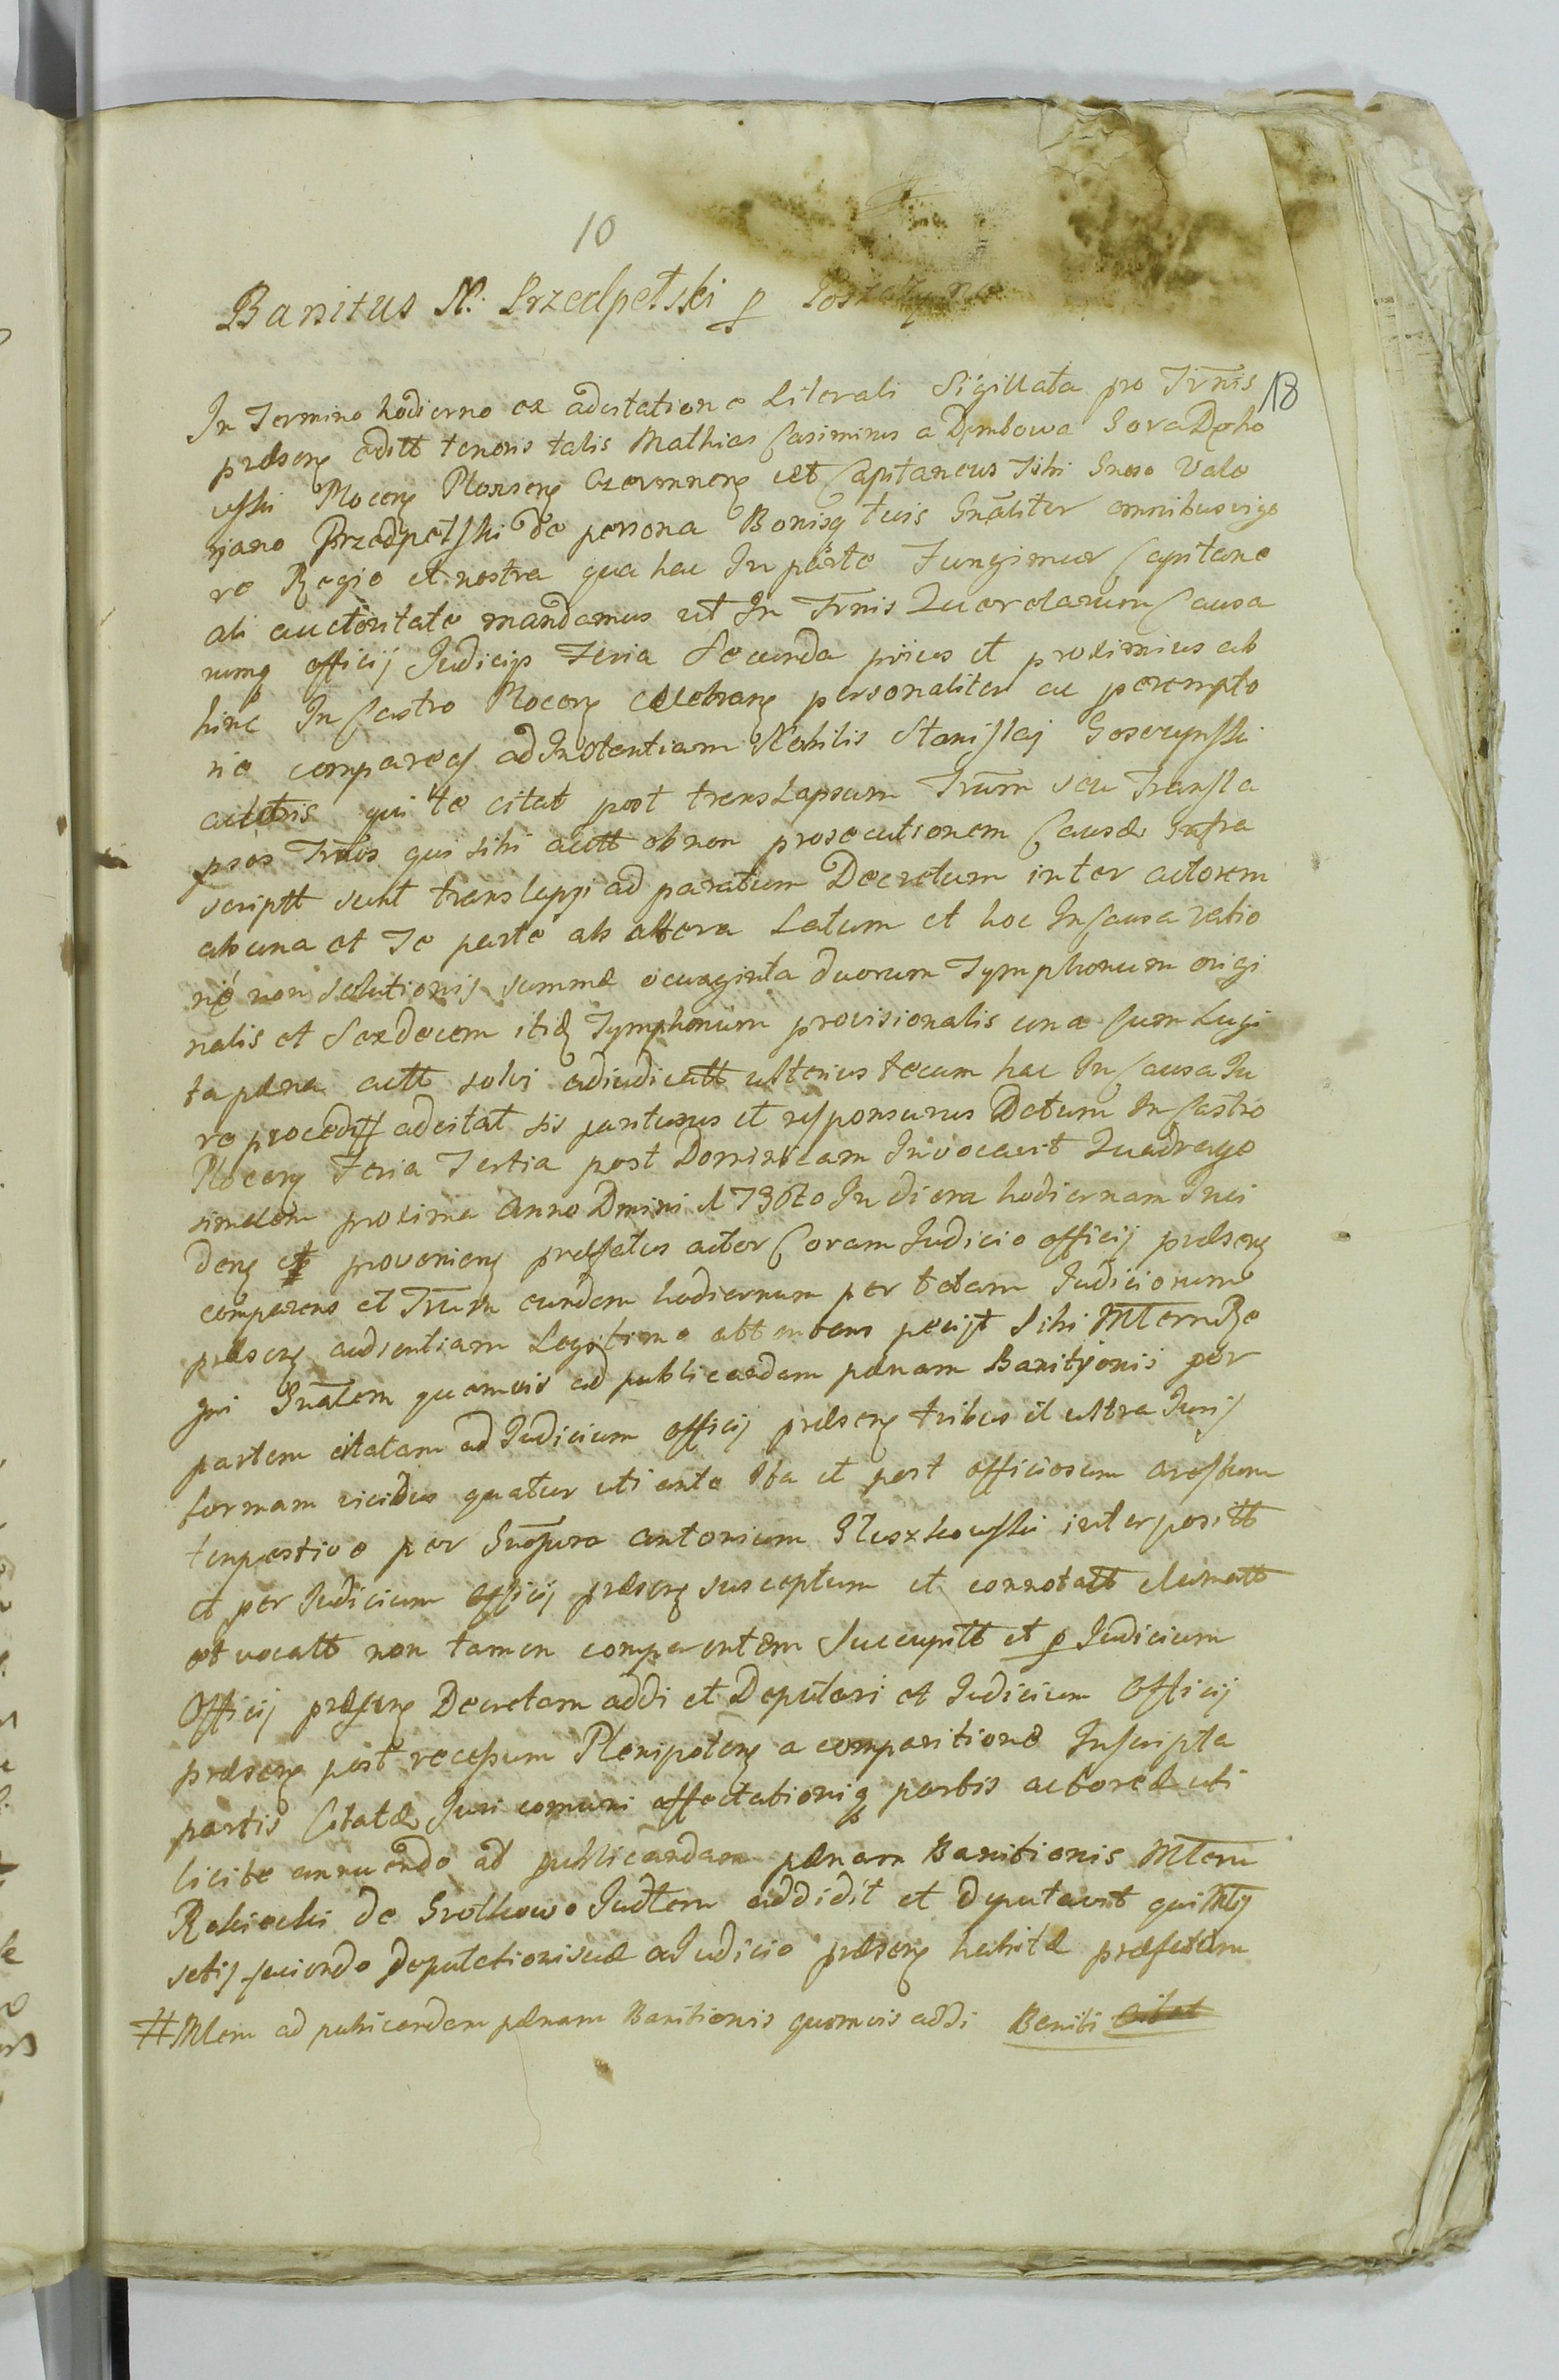 10
Banitus N: Przedpełski p
18
In Termino hodierno ex adcitatione Literali Sigillata pro Trnis
præseng editt tenoris talis Mathias Casimirus a Dembowa Gora
Ploceng Plonseng et Capitaneus Tibi Gnoso Vale
riano Przedpełski de persona Bonisq tuis Gnāliter omnibus vigo
re Regio et nostra qua hac In parte Fungimur Capitane
ali auctoritate mandamus ut In Trnis Querelarum Causa
rumq officij Judicijs Feria Secunda prius et proximius ab
hinc In Castro Ploceng celebrang personaliter ac perempto
rie compareas ad Instantiam Nobilis Stanislaj Gosczynski
actoris qui te citat post translapsum Trūm seu Transla
psos Trnos qui sibi actt ob non prosecutionem Causæ Infra
scriptt sunt translapsi ad paratum Decretum inter actorem
ab una et Te parte ab altera Latum et hoc In Causa ratio
ne non solutionis summæ duorum Tymphonum origi
nalis et Sexdecem itid Tymphonum provisionalis una cum Lugi
ta pæna actt solvi adiudicatt ulterius tecum hac In Causa Iu
re procedi adcitat sis pariturus et responsurus Datum In Castro
Ploceng Feria Tertia post Dominicam Invocavit Quadrage
simalem proxima Anno Dmini 1736to In diem hodiernam Inci
deng et proveniens præfatus actor Coram Judicio officij præseng
comparens et Trum eundem hodiernum per totam Judiciorum
præseng audientiam Legitime attentans petijt Sibi Mtem Re
gni Gnalem quemvis ad publicandam pænam Banitionis per
partem citatam ad Judicium officij præseng tribus et ultra Juris
formam vicibus quatuor uti ante Ita et post officiosum arestum
tempestive per Antonium Gluszkowski interpositt
et per Judicium officij præseng susceptum et connotatt clamatt
et vocatt non tamen comparentem Succupitt et p Judicium
Officij præseng Decretam addi et Deputari et Judicium Officij
præseng post recessum Plenipoteng a comparitione Inscripta
partis Citatæ Juri comuni affectationiq partis actoreæ uti
licite annuendo ad publicandam pænam Banitionis Mtem
Rokicki de Srolkowo Judtem addidit et deputavit qui Mtij
satis faciendo deputationi suæ a Judicio præseng habitæ præfatum
# Mtem ad publicandam pænam Banitionis quemvis addi Baniti